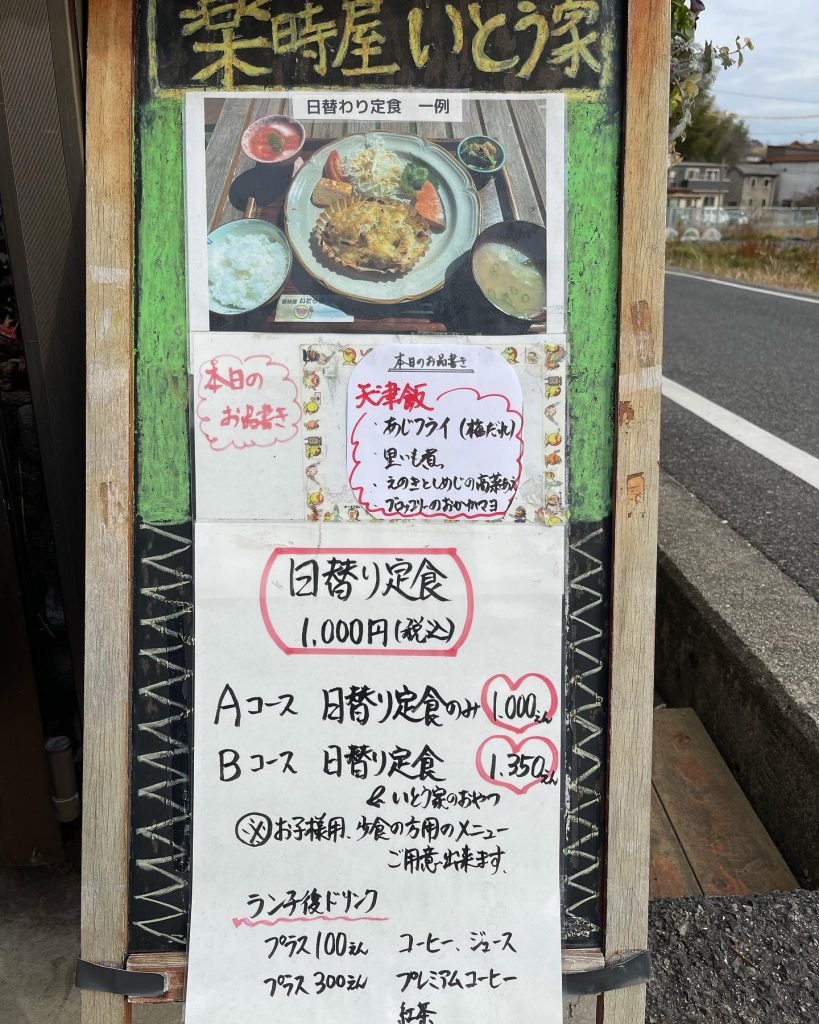 楽時屋 いとう家
日替わり定食 一例
楽時屋 いとう家
本日の
お品書き
本日のお品書き
天津飯
・あじフライ(梅だれ)
・里いも煮
・えのきとしめじの高菜あえ
・ブロッコリーのおかかマヨ
日替り定食
1,000円(税込)
Aコース 日替り定食のみ 1.000えん
Bコース 日替り定食 1.350えん
& いとう家のおやつ
※お子様用、少食の方用のメニュー
ご用意出来ます。
ランチ後ドリンク
プラス100えん コーヒー、ジュース
プラス300えん プレミアムコーヒー
紅茶